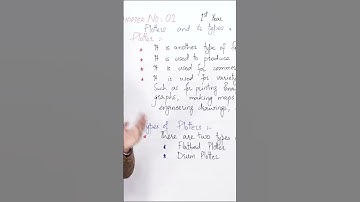 CHAPTER NO: 01 1st Year
Plotters and its types
Plotter :-
* It is another type of
* It is used to produce
* It is used for
* It is used for
Such as for printing
graphs, making maps
engineering drawings
Types of Plotters :-
There are two types
* Flatbed Plotter
* Drum Plotter